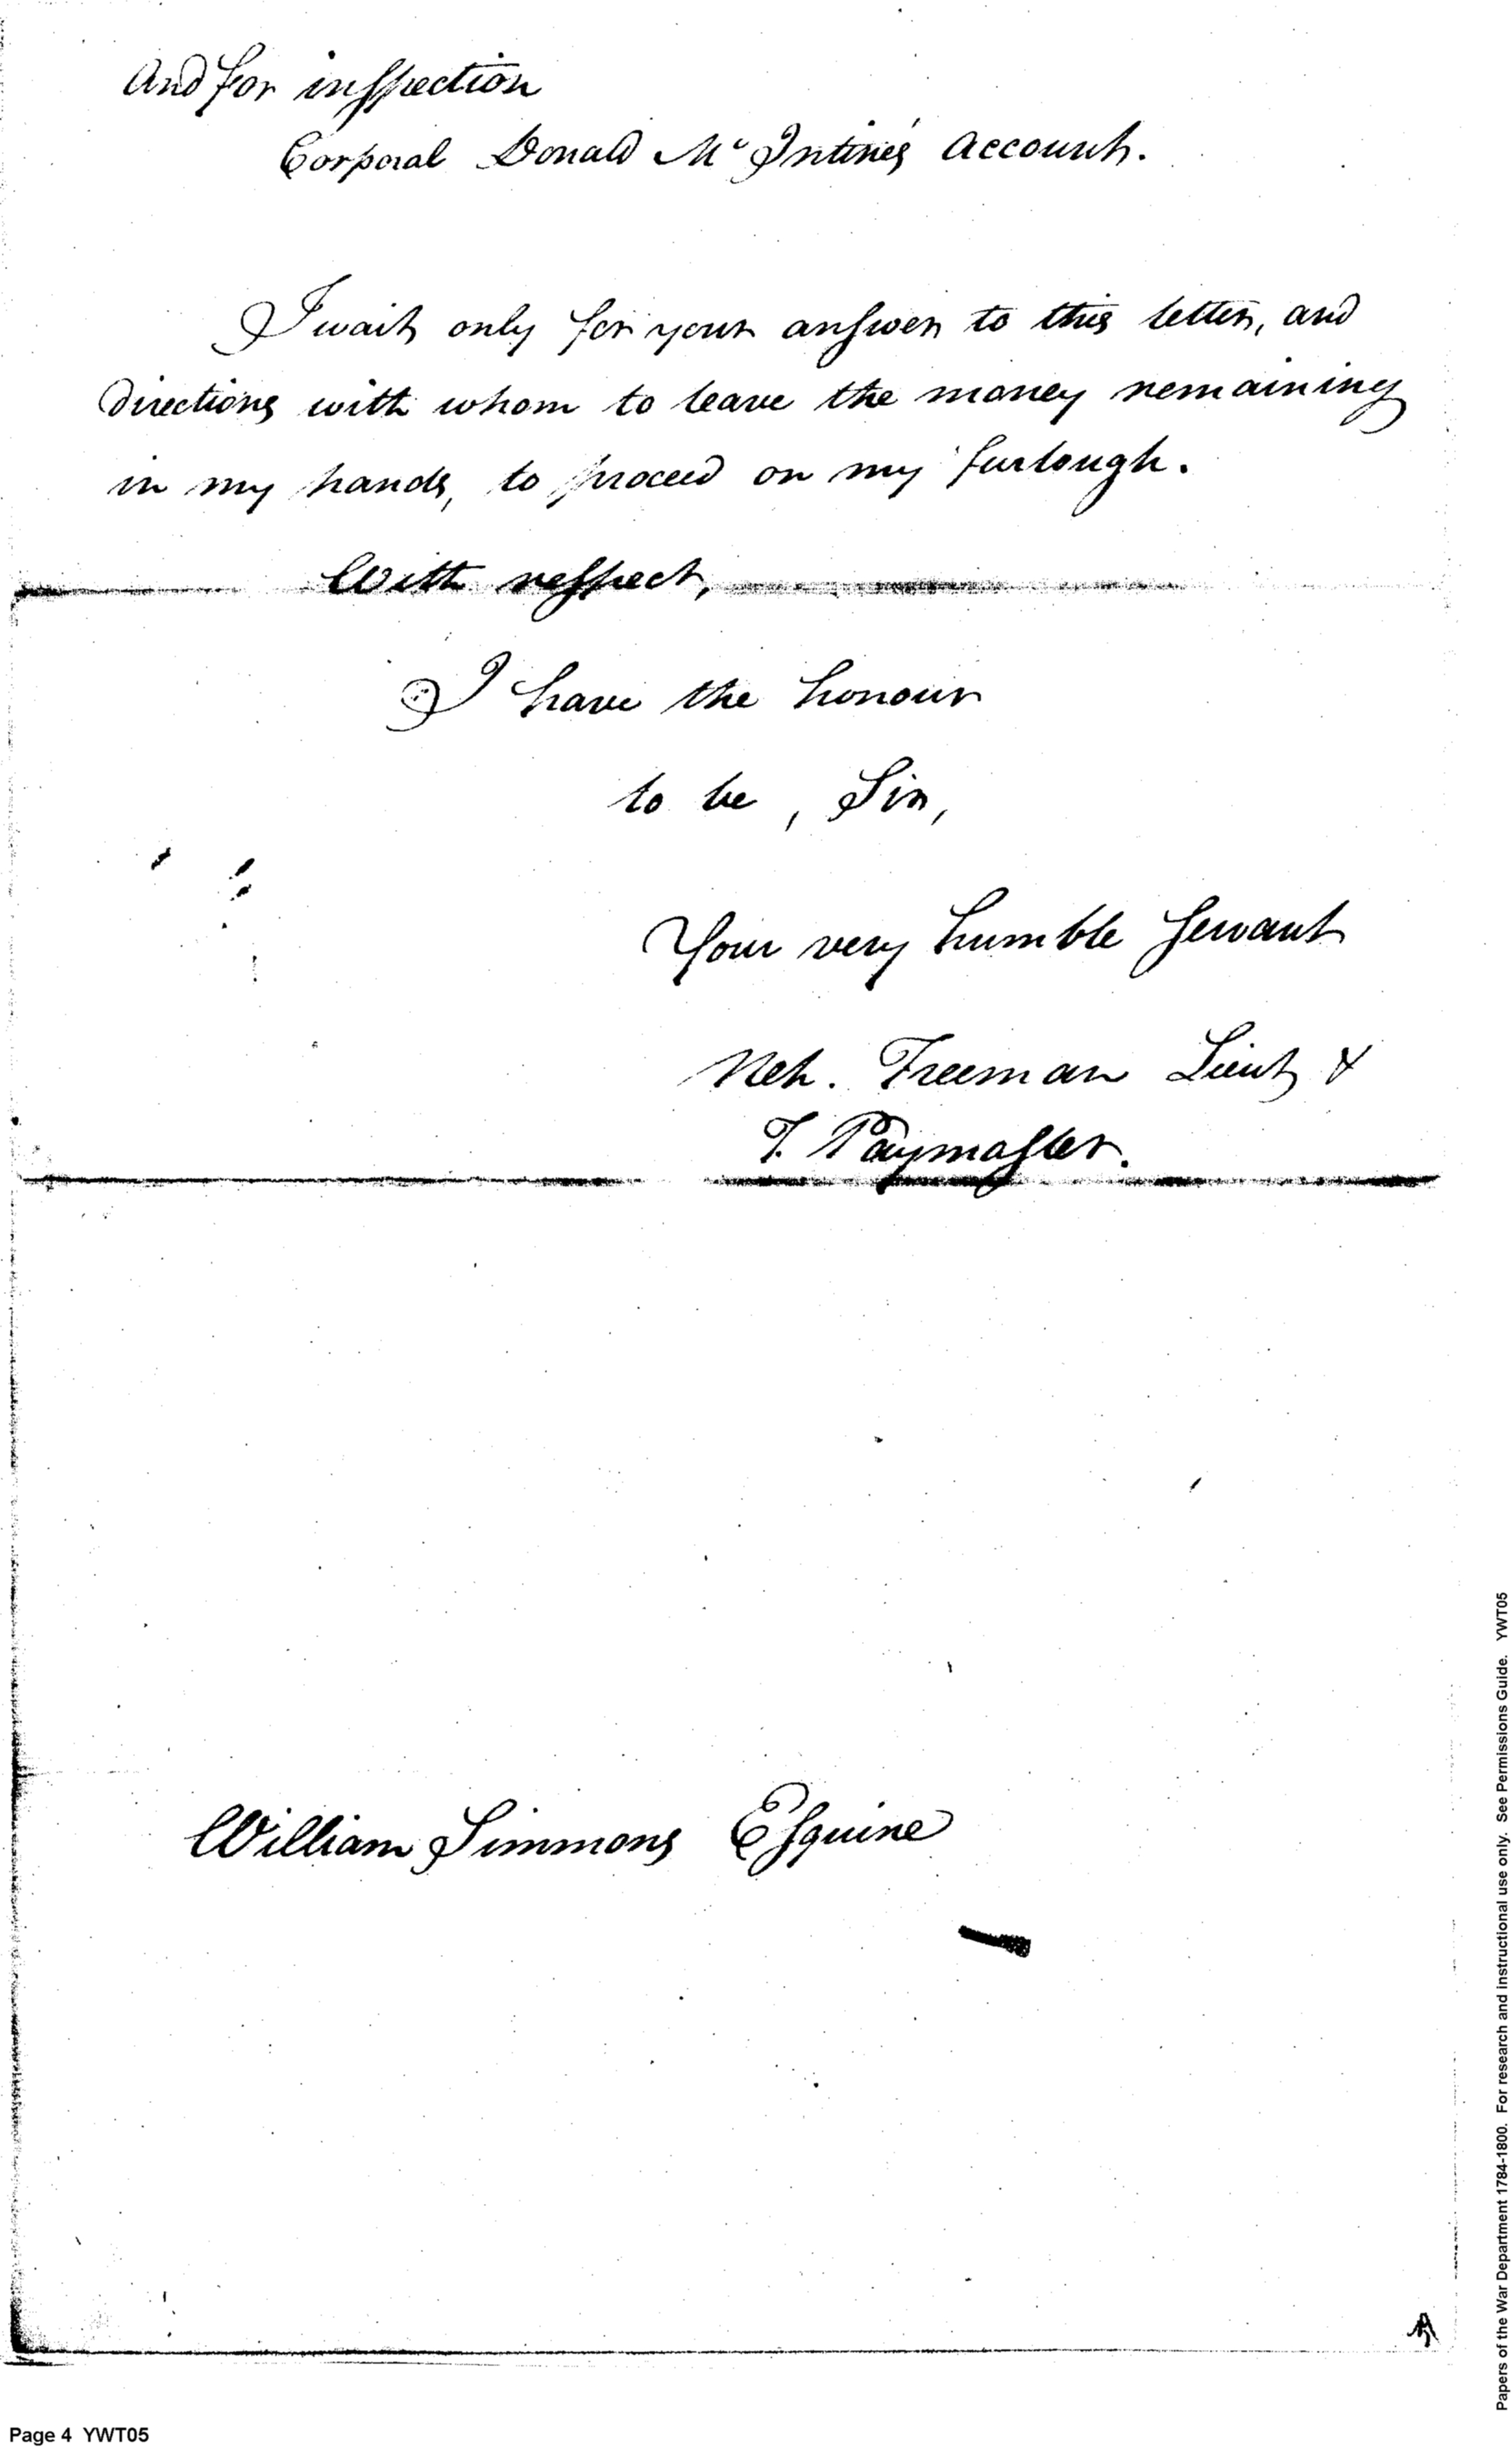 And for inspection
Corporal Donald Mc Intire's Account.
I wait only for your answer to this letter, and
directions with whom to leave the money remaining
in my hands, to proceed on my furlough.
With respect,
I have the honour
to be, Sir,
Your very humble Servant
Neh. Freeman Lieut &
T. Paymaster.
William Simmons Esquire
Page 4 YWT05
Papers of the War Department 1784-1800. For research and instructional use only. See Permissions Guide. YWT05